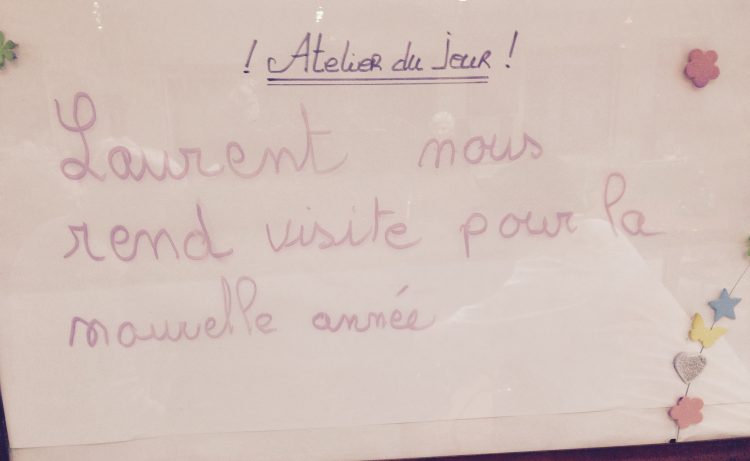 ! Atelier du jour !
Laurent nous
rend visite pour la
nouvelle année